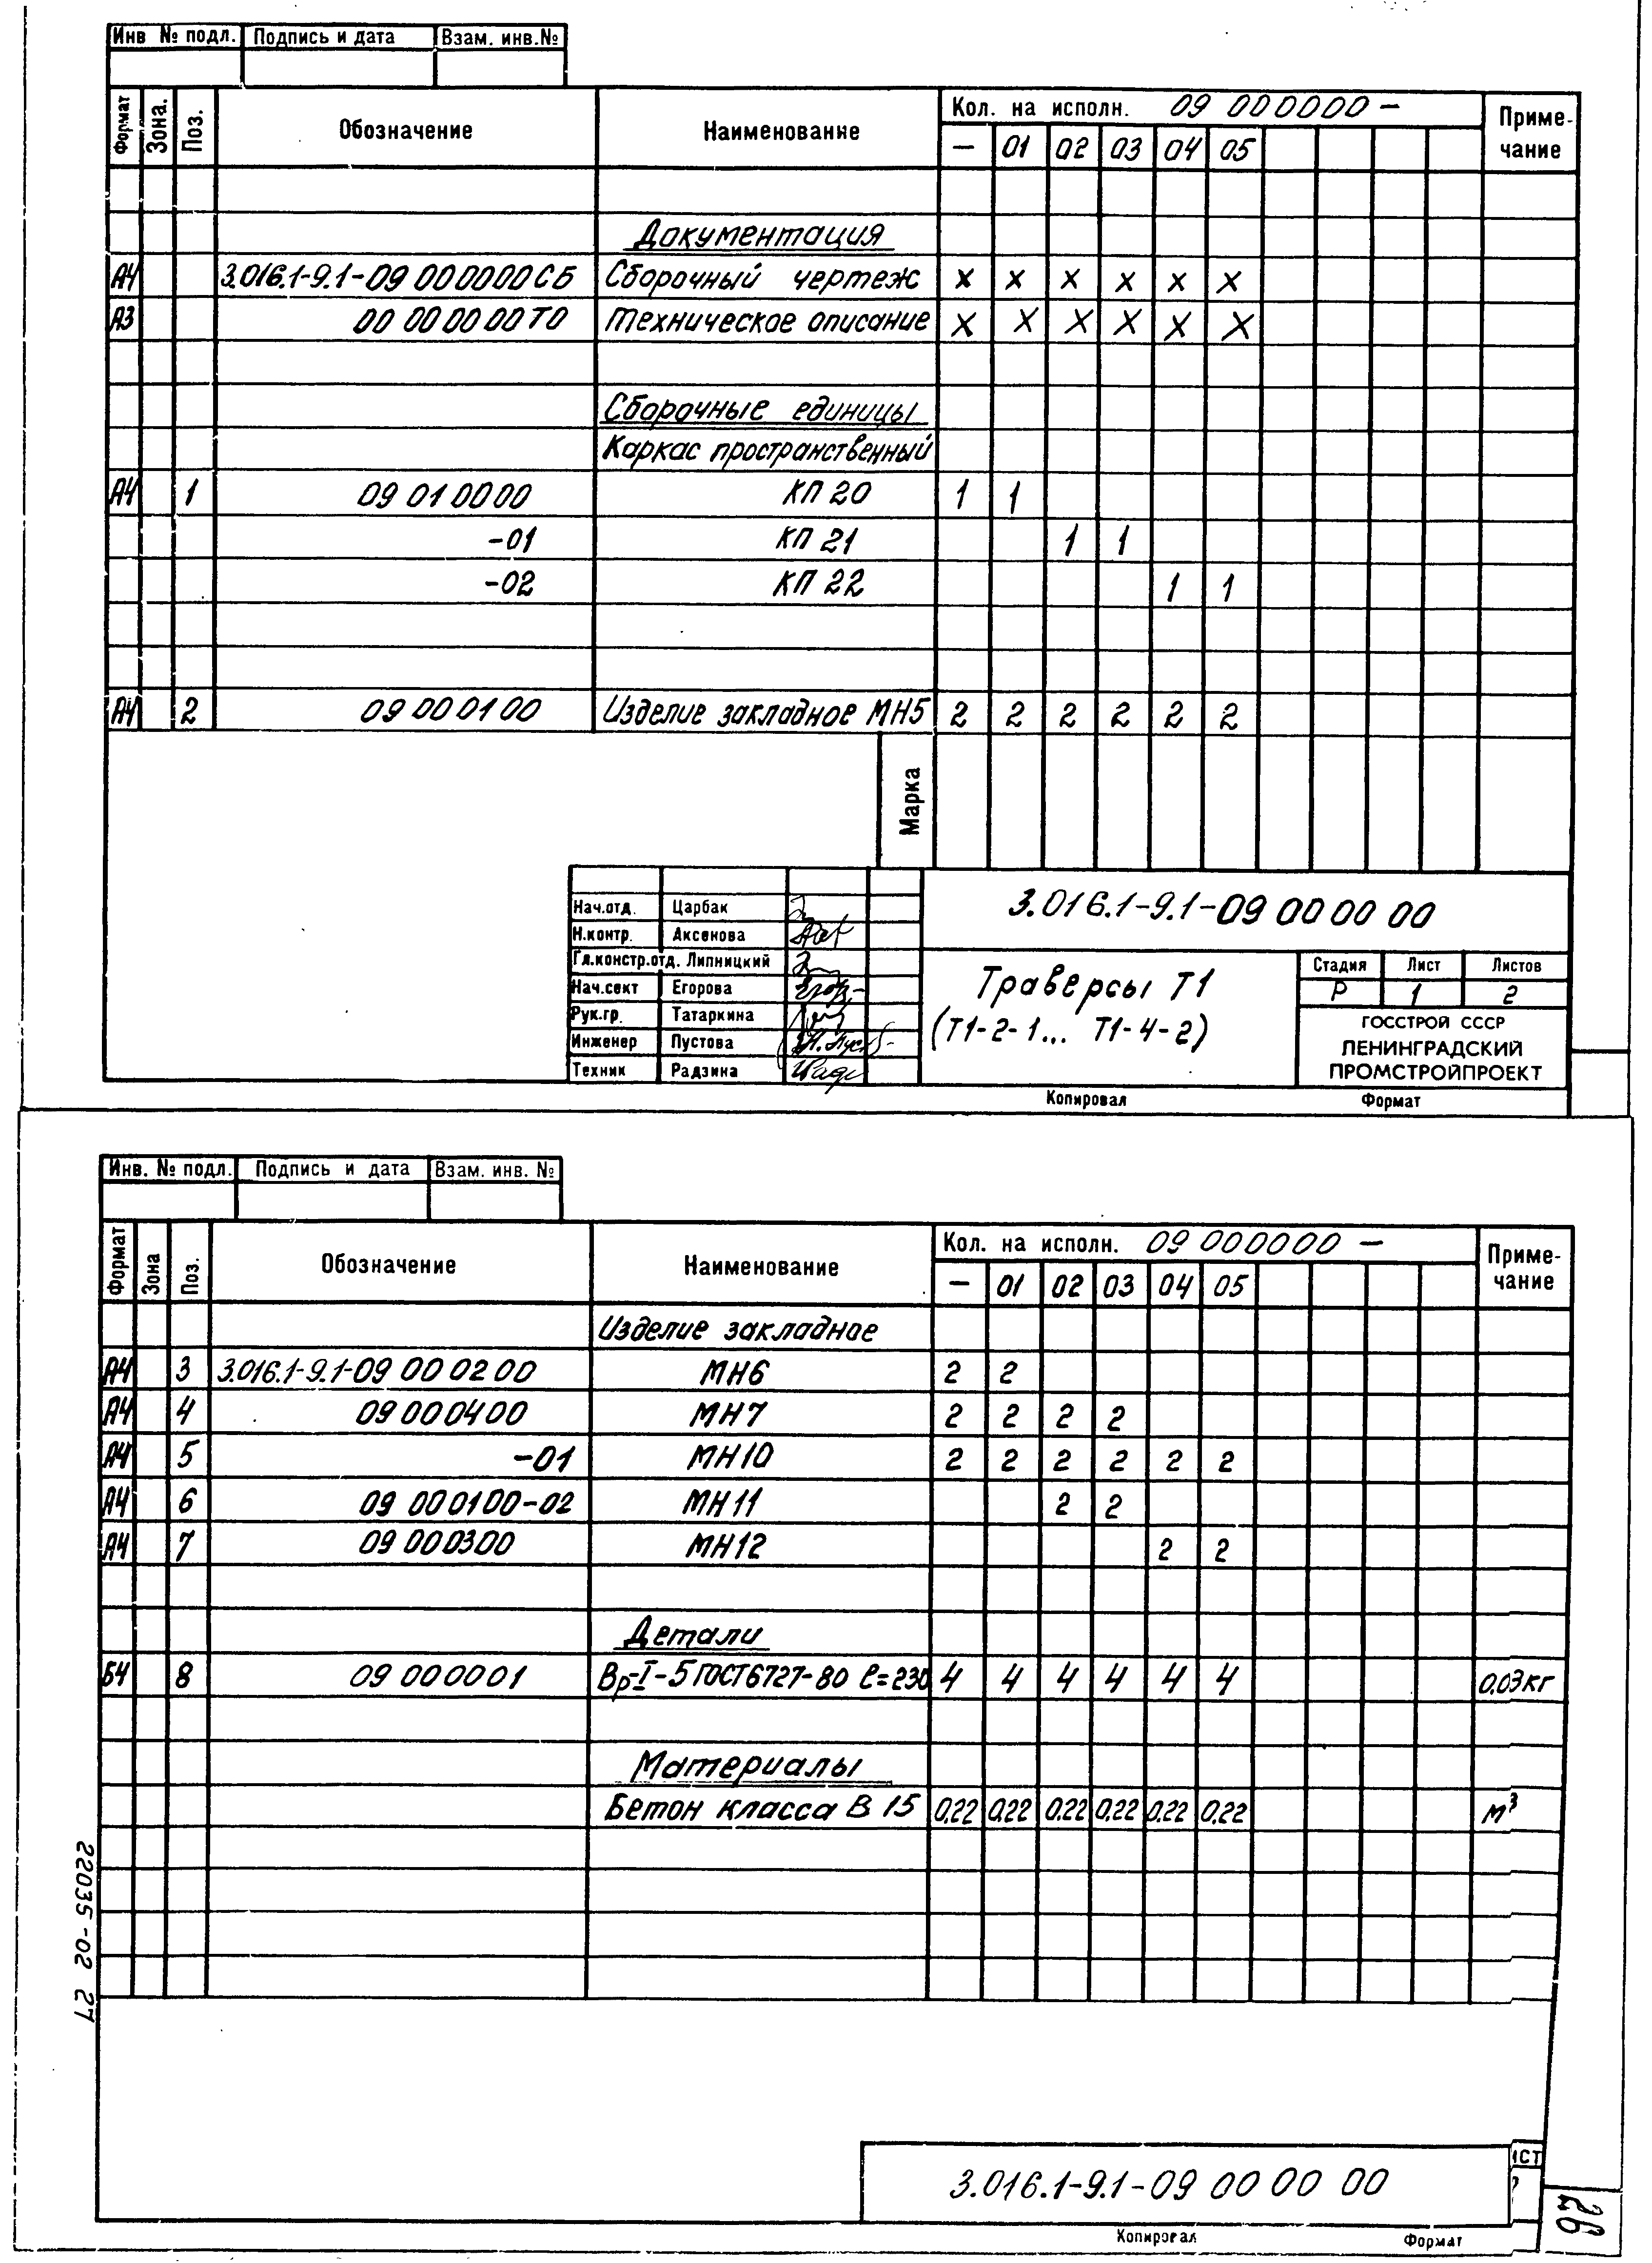 Инв № подл. Подпись и дата Взам. инв.№
Формат Зона. Поз. Обозначение Наименование Кол. на исполн. 09 000000 – Приме-
чание
– 01 02 03 04 05
Документация
А4 3.016.1-9.1-09 000000СБ Сборочный чертеж х х х х х х
А3 00 00 00 00 ТО Техническое описание х х х х х х
Сборочные единицы
Каркас пространственный
А4 1 09 01 00 00 КП 20 1 1
-01 КП 21 1 1
-02 КП 22 1 1
А4 2 09 00 01 00 Изделие закладное МН5 2 2 2 2 2 2
Марка
3.016.1-9.1-09 00 00 00
Нач.отд. Царбак
Н.контр. Аксенова
Гл.констр.отд. Липницкий
Нач.сект Егорова
Рук.гр. Татаркина
Инженер Пустова
Техник Радзина
Траверсы Т1
(Т1-2-1... Т1-4-2)
Стадия Лист Листов
Р 1 2
ГОССТРОЙ СССР
ЛЕНИНГРАДСКИЙ
ПРОМСТРОЙПРОЕКТ
Копировал Формат
Инв. № подл. Подпись и дата Взам. инв. №
Формат Зона Поз. Обозначение Наименование Кол. на исполн. 09 000000 – Приме-
чание
– 01 02 03 04 05
Изделие закладное
А4 3 3.016.1-9.1-09 00 02 00 МН6 2 2
А4 4 09 00 04 00 МН7 2 2 2 2
А4 5 -01 МН10 2 2 2 2 2 2
А4 6 09 00 01 00-02 МН11 2 2
А4 7 09 00 03 00 МН12 2 2
Детали
Б4 8 09 00 00 01 Вр-I-5 ГОСТ 6727-80 ℓ=230 4 4 4 4 4 4 0,03 кг
Материалы
Бетон класса В 15 0,22 0,22 0,22 0,22 0,22 0,22 м³
22035-02 27
3.016.1-9.1-09 00 00 00
Копировал Формат
26